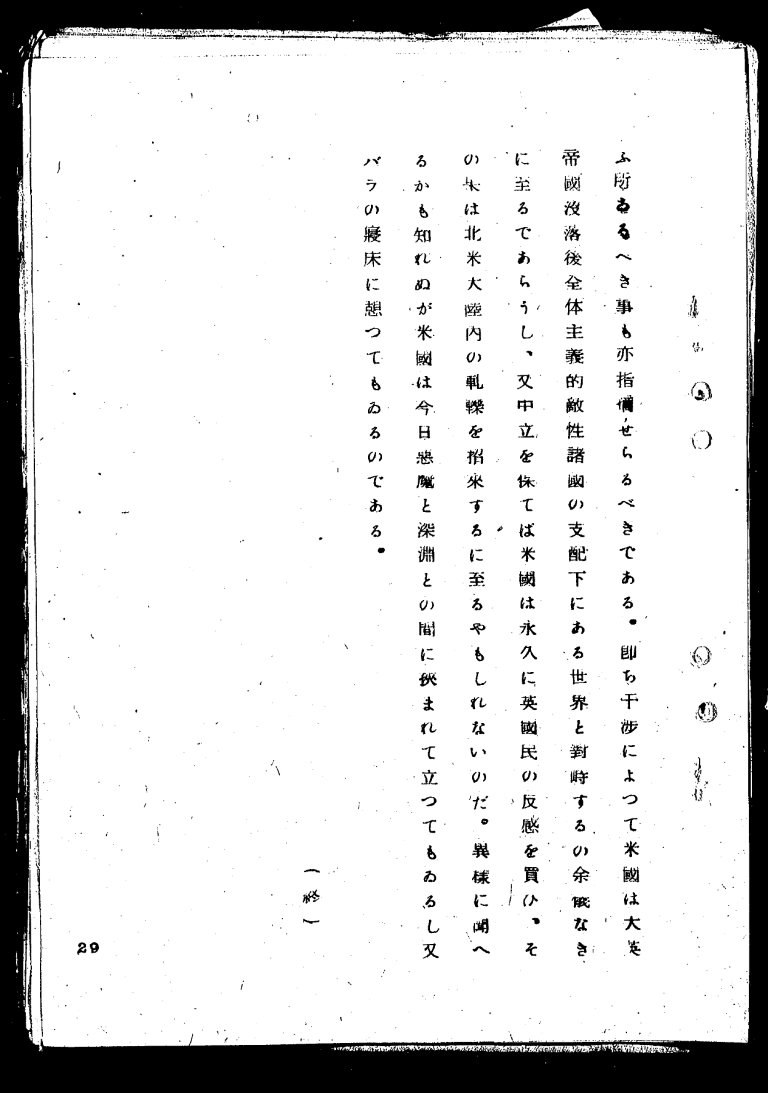 ふ所あるべき事も亦指摘せらるべきである。即ち干渉によつて米國は大英
帝國没落後全体主義的敵性諸國の支配下にある世界と對峙するの余儀なき
に至るであらうし、又中立を保てば米國は永久に英國民の反感を買ひ、そ
の末は北米大陸内の軋轢を招來するに至るやもしれないのだ。異様に聞へ
るかも知れぬが米國は今日悪魔と深淵との間に挾まれて立つてもゐるし又
バラの寢床に憩つてもゐるのである。
(終)
29